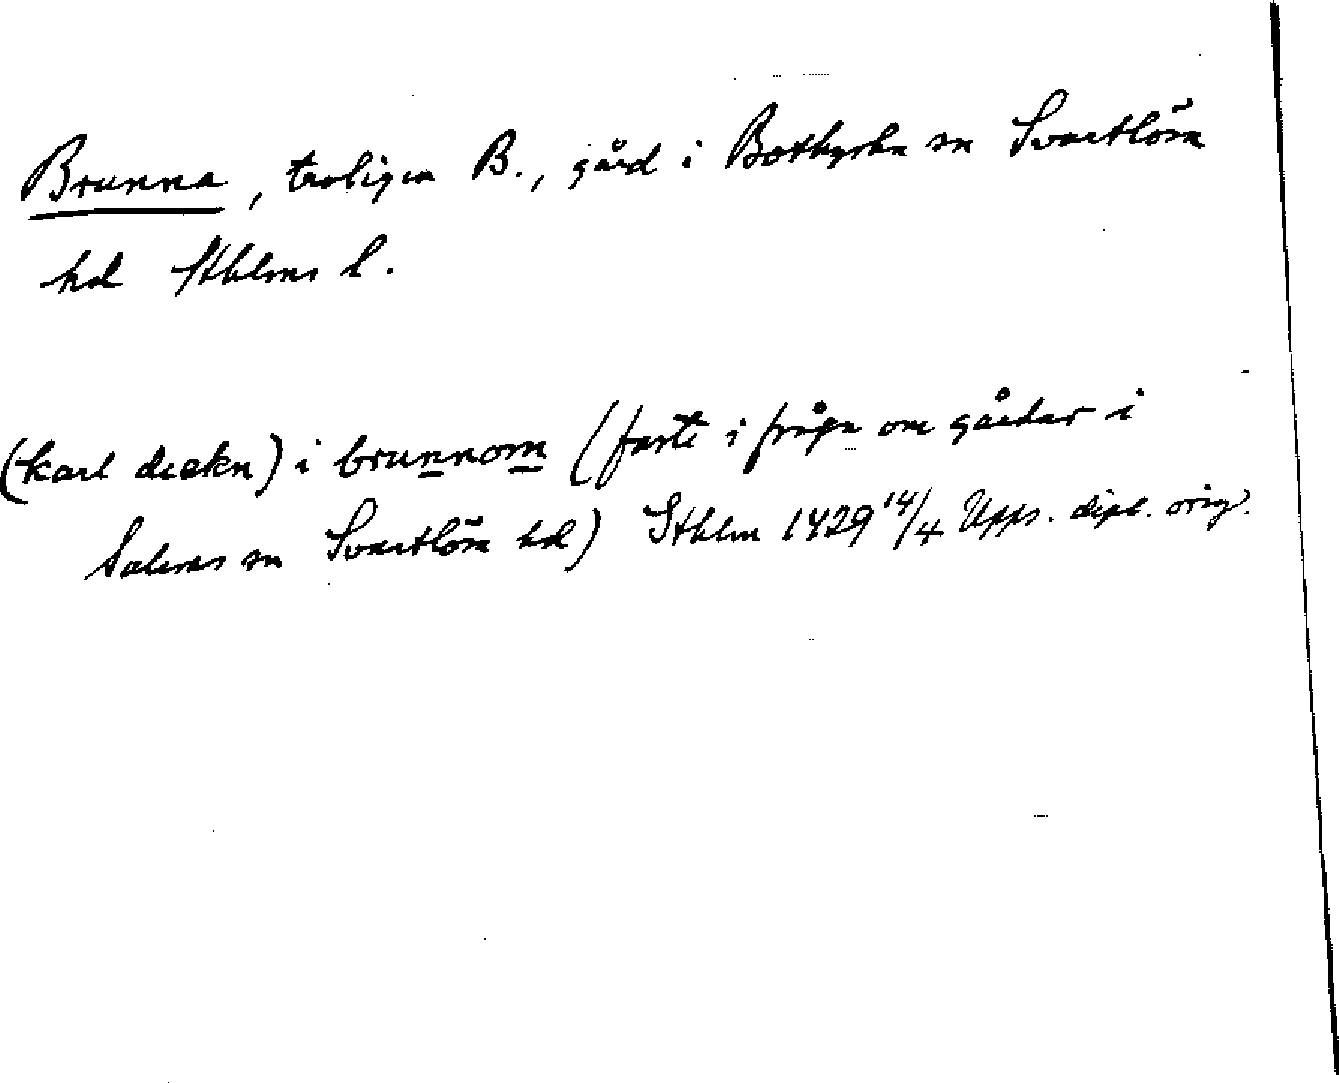 Brunna, troligen B., gård i Botkyrka sn Svartlösa
hd Sthlms l.
(karl diekn) i brunnom (faste i fråga om gårdar i
Salems sn Svartlösa hd) Sthlm 1429 14/4 Upps. dipl. orig.